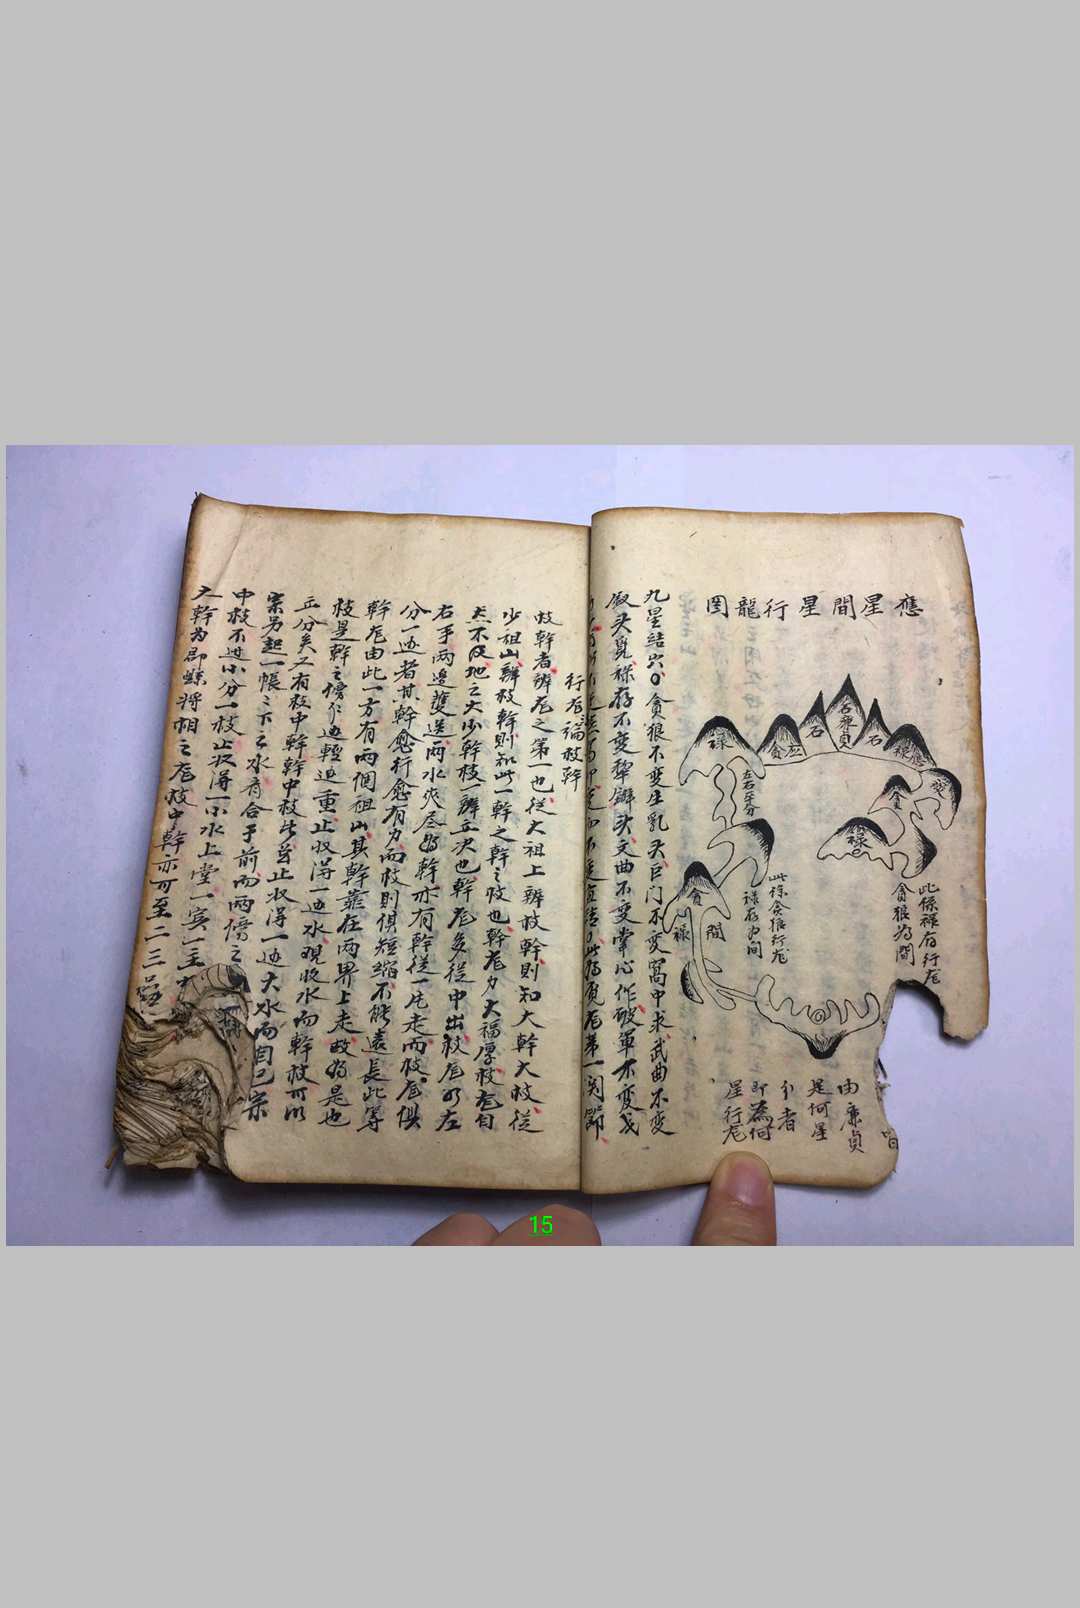 應星間星行龍圖
廉貞
石
石
貪
應
祿
祿應
變
貪
祿
左右牙分
貪
祿
間
此祿貪狼行龙
祿存为间
此係祿存行龙
貪狼为間
由廉貞
是何星
分者
即為何
星行龙
九星結穴〇貪狼不变生乳头巨门不变窩中求武曲不变
釵头覓祿存不变犁鐴头文曲不变掌心作破軍不变戈
行龙論枝幹
枝幹者辨龙之第一也從大祖上辨枝幹則知大幹大枝從
少祖山辨枝幹則知此一幹之幹之枝也幹龙力大福厚枝龙自
然不及地之大少幹枝一辨立决也幹龙多從中出枝龙必左
右手两邊雙送两水夾尽为幹亦有幹從一庄走而枝龙俱
分一边者其幹愈行愈有力而枝則俱短縮不能遠長此等
幹龙由此一方有两個祖山其幹龍在两界上走故为是也
枝是幹之傍仁边輕边重止收得一边水觀收水而幹枝可以
立分矣又有枝中幹幹中枝皆首止收得一边大水而自己宗
宗另起一帳之下之水肯合于前而两傍之
中枝不过小分一枝止收得一小水上堂一宾一主
大幹为郡縣将相之龙枝中幹亦可至二三品
15